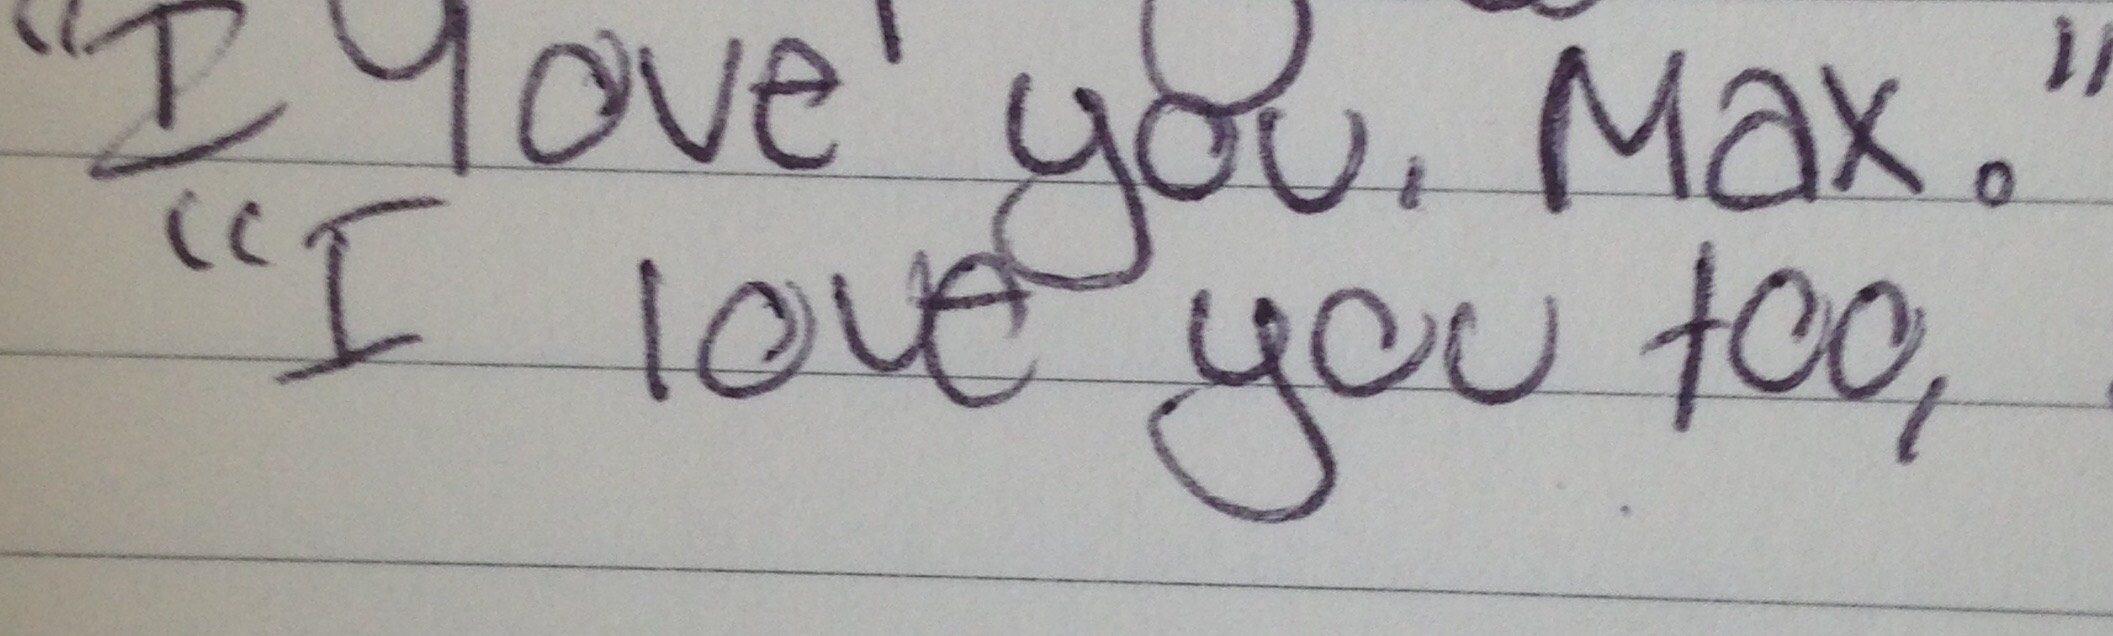 "I love you, Max."
"I love you too,